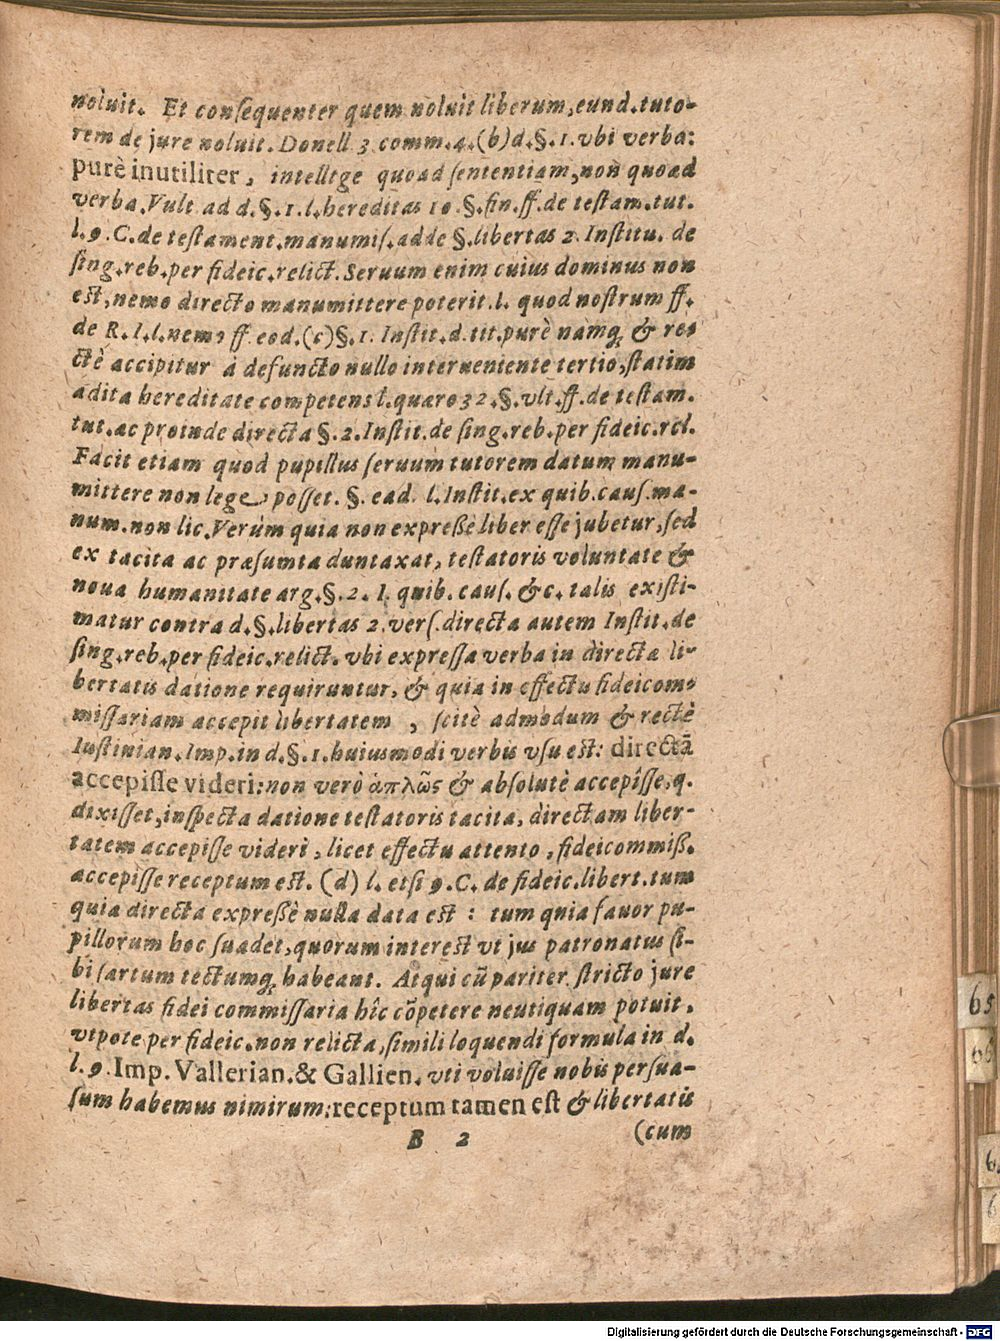 noluit. Et conſequenter quem noluit liberum, eund. tuto-
rem de jure noluit. Donell 3 comm. 4. (b) d. §. 1. vbi verba:
purè inutiliter, intellige quoad ſententiam, non quoad
verba. Vult. ad d. §. 1. l. hereditas 10. §. fin. ff. de teſtam. tut.
l. 9. C. de teſtament. manumiſ. adde §. libertas 2. Inſtitu. de
ſing. reb. per fideic. relict. Seruum enim cuius dominus non
est, nemo directo manumittere poterit. l. quod noſtrum ff.
de R. I. l. nemo ff. eod. (c) §. 1. Inſtit. d. tit. purè namq; & re-
ctè accipitur á defuncto nullo interueniente tertio, ſtatim
adita hereditate competens l. quaro 32. §. vlt. ff. de teſtam.
tut. ac proinde directa §. 2. Inſtit. de ſing. reb. per fideic. rel.
Facit etiam quod pupillus ſeruum tutorem datum manu-
mittere non lege poſſet. §. ead. l. Inſtit. ex quib. cauſ. ma-
num. non lic. Verùm quia non expreßè liber eſſe jubetur, ſed
ex tacita ac præſumta duntaxat, teſtatoris voluntate &
noua humanitate arg. §. 2. I. quib. cauſ. &c. talis exiſti-
matur contra d. §. libertas 2. verſ. directa autem Inſtit. de
ſing. reb. per fideic. relict. vbi expreſſa verba in directæ li-
bertatis datione requiruntur, & quia in effectu fideicom-
miſſariam accepit libertatem, ſcitè admodum & rectè
Iuſtinian. Imp. in d. §. 1. huiusmodi verbis vſu est: directã
accepiſſe videri: non verò ἁπλῶς & abſolutè accepiſſe, q.
dixiſſet, inſpecta datione teſtatoris tacita, directam liber-
tatem accepiſſe videri, licet effectu attento, fideicommiß.
accepiſſe receptum est. (d) l. etſi 9. C. de fideic. libert. tum
quia directa expreßè nulla data est: tum qnia fauor pu-
pillorum hoc ſuadet, quorum interest vt jus patronatus ſi-
bi ſartum tectumq; habeant. Atqui cũ pariter ſtricto jure
libertas fidei commiſſaria hîc cõpetere neutiquam potuit,
vtpote per fideic. non relicta, ſimili loquendi formula in d.
l. 9. Imp. Vallerian. & Gallien. vti voluiſſe nobis perſua-
ſum habemus nimirum: receptum tamen eſt & libertatis
B 2 (cum
65
Digitalisierung gefördert durch die Deutsche Forschungsgemeinschaft - DFG